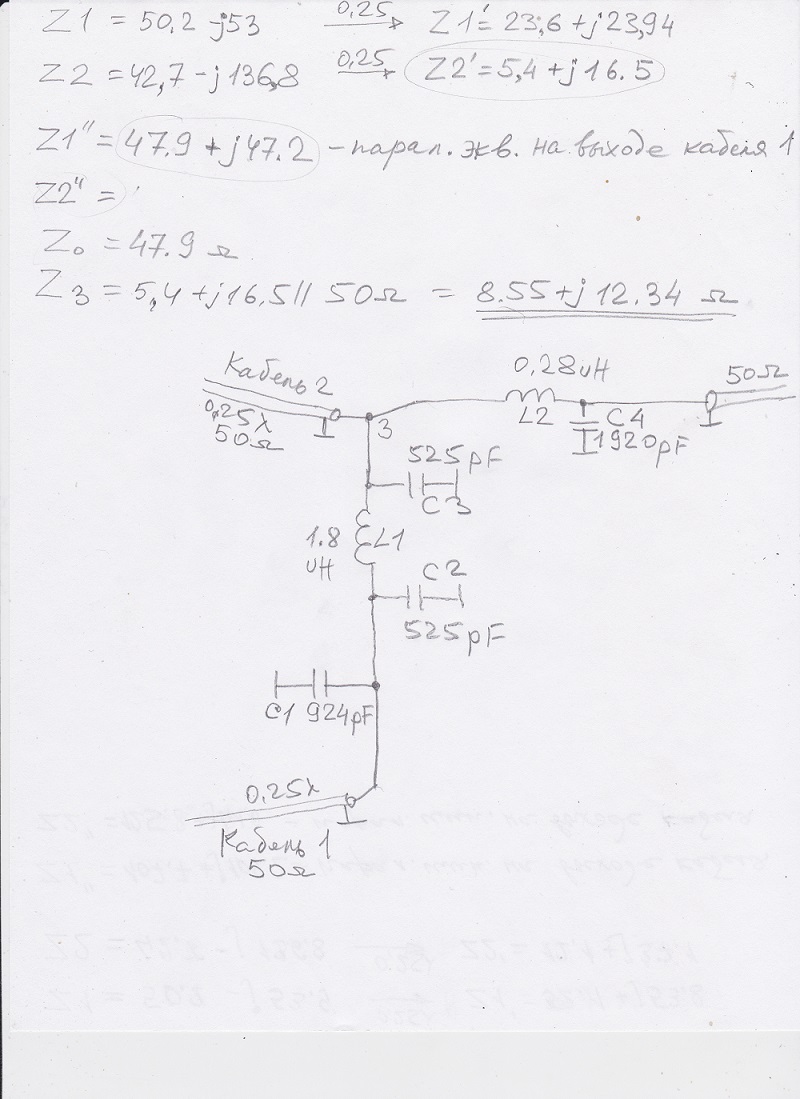 Z1 = 50,2 -j53 0,25 Z1' = 23,6 + j23,94
Z2 = 42,7 - j136,8 0,25 Z2' = 5,4 + j16.5
Z1" = 47.9 + j47.2 - парал. экв. на выходе кабеля 1
Z2" =
Z0 = 47.9 Ω
Z3 = 5,4 + j16.5 // 50Ω = 8.55 + j12.34 Ω
Кабель 2
0,25λ
50Ω
3
0,28uH
L2
C4
1920pF
50Ω
525pF
C3
1.8
uH
L1
C2
525pF
C1 924pF
0,25λ
Кабель 1
50Ω